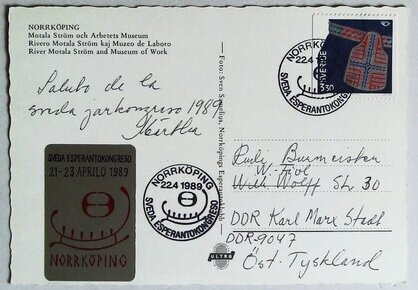 NORRKÖPING
Motala Ström och Arbetets Museum
Rivero Motala Ström kaj Muzeo de Laboro
River Motala Ström and Museum of Work
Saluto de la
sveda jarkongreso 1989
SVEDA ESPERANTOKONGRESO
21-23 APRILO 1989
NORRKÖPING
NORRKÖPING
22.4 1989
SVEDA ESPERANTOKONGRESO
Foto: Sven
Norrköpings Esperanto
ULTRA
NORRKÖPING
22.4 1989
SVEDA ESPERANTOKONGRESO
SVERIGE
3.30
Rudi Burmeister
Str 30
DDR Karl Marx Stadt
DDR-9047
Öst. Tyskland